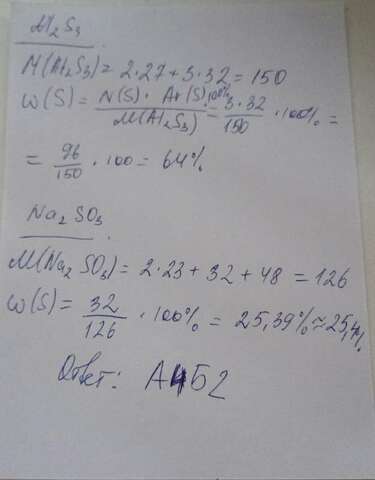 Al₂S₃
M(Al₂S₃) = 2·27+3·32 = 150
ω(S) = N(S)· Ar(S)·100% / M(Al₂S₃) = 3·32 / 150 ·100% =
= 96/150 ·100 = 64%
Na₂SO₃
M(Na₂SO₃) = 2·23+32+48 = 126
ω(S) = 32/126 ·100% = 25,39% ≈ 25,4%
Ответ: А4Б2